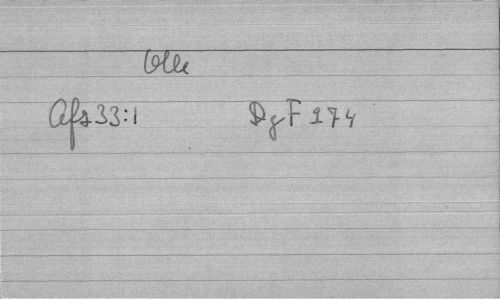 Olle
Afs 33:1 DgF 174